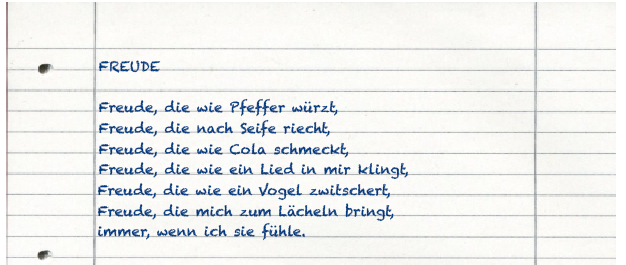 FREUDE
Freude, die wie Pfeffer würzt,
Freude, die nach Seife riecht,
Freude, die wie Cola schmeckt,
Freude, die wie ein Lied in mir klingt,
Freude, die wie ein Vogel zwitschert,
Freude, die mich zum Lächeln bringt,
immer, wenn ich sie fühle.